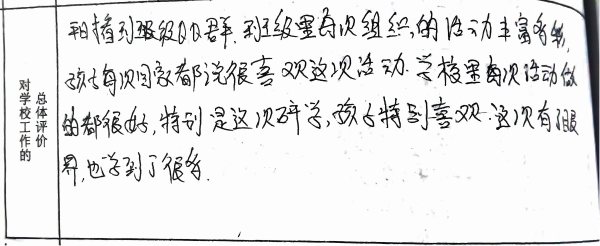 对学校工作的
总体评价
看到班级QQ群,到班级里每次组织的活动丰富多彩,
孩子每次回家都说很喜欢这次活动.学校里每次活动做
的都很好,特别是这次研学,孩子特别喜欢.这次有了眼
界,也学到了很多.